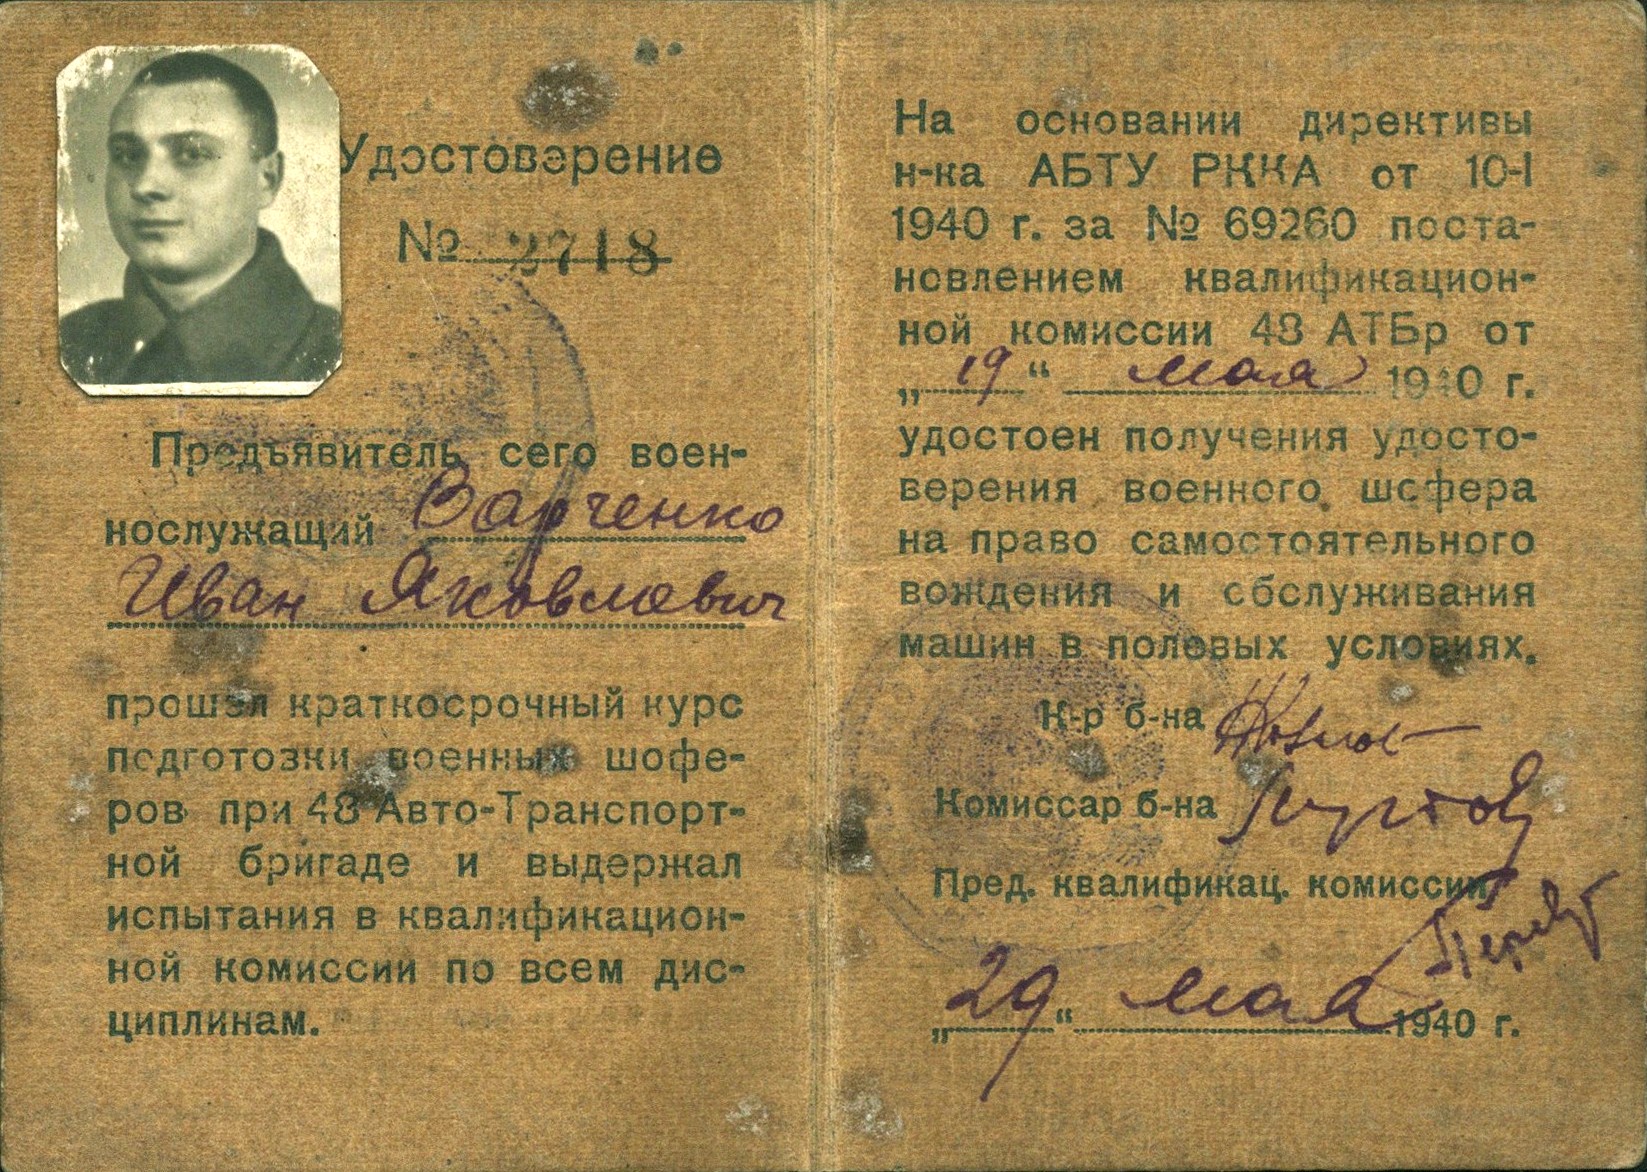 Удостоверение
№ 2718
Предъявитель сего воен-
нослужащий Варченко
Иван Яковлевич
прошел краткосрочный курс
подготовки военных шофе-
ров при 48 Авто-Транспорт-
ной бригаде и выдержал
испытания в квалификацион-
ной комиссии по всем дис-
циплинам.
На основании директивы
н-ка АБТУ РККА от 10-I
1940 г. за № 69260 поста-
новлением квалификацион-
ной комиссии 48 АТБр от
„19“ мая 1940 г.
удостоен получения удосто-
верения военного шофера
на право самостоятельного
вождения и обслуживания
машин в полевых условиях.
К-р б-на
Комиссар б-на
Пред. квалификац. комиссии
„29“ мая 1940 г.